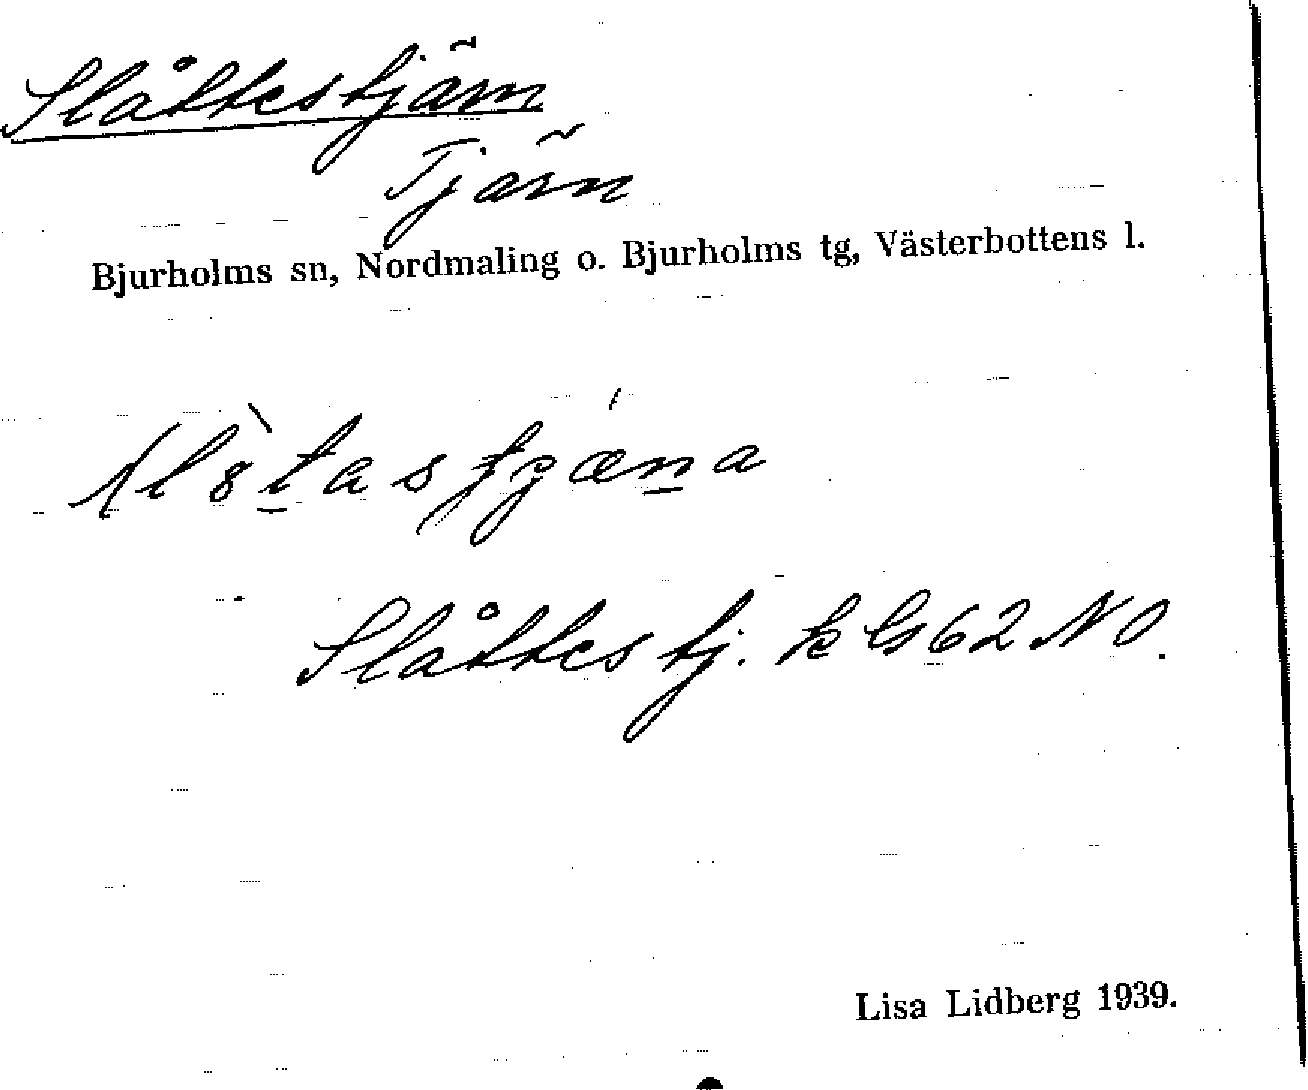 Slåttestjärn
Tjärn
Bjurholms sn, Nordmaling o. Bjurholms tg, Västerbottens l.
Slåttestj. k G 62 NO.
Lisa Lidberg 1939.